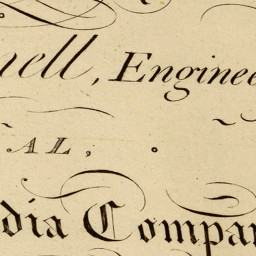 nell, Enginee
AL;
dia Compan